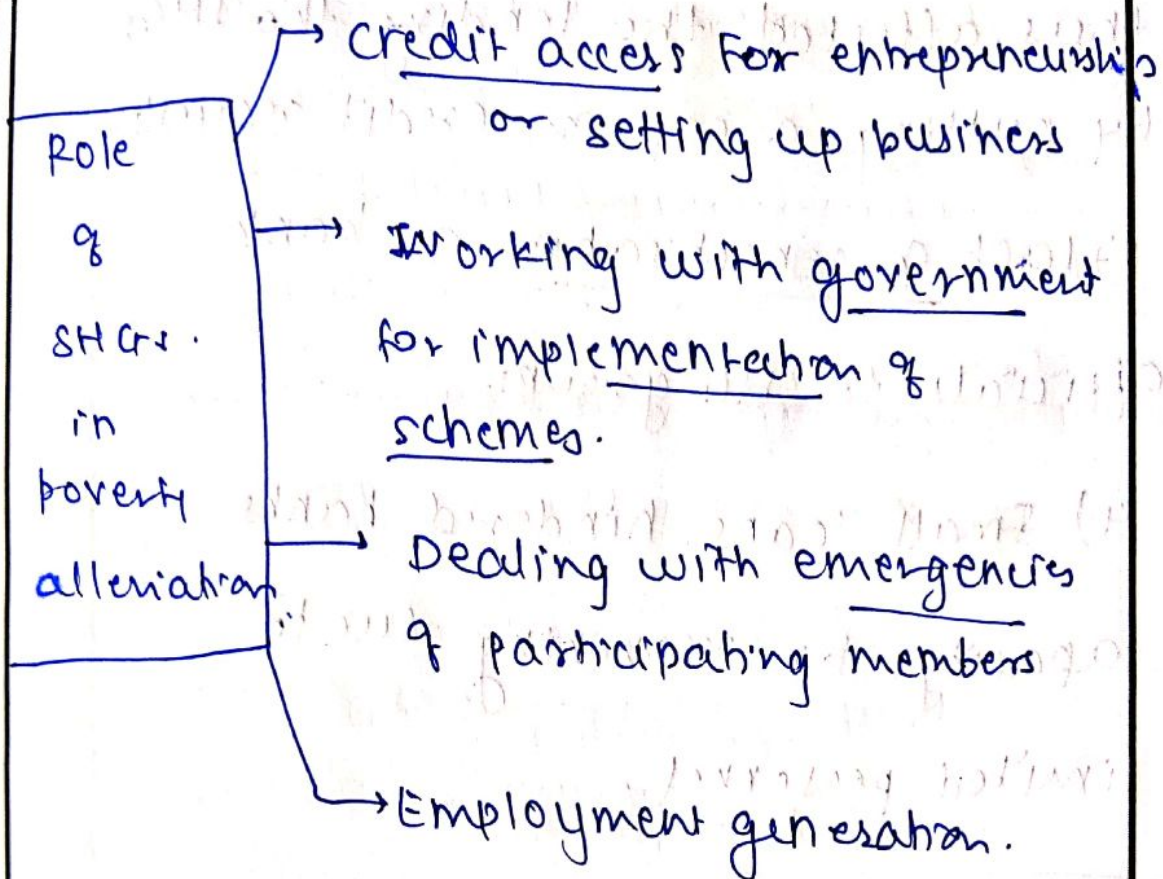 Role
of
SHGs.
in
poverty
alleviation
→ Credit access For entrepreneurship
or setting up business
→ Working with government
for implementation of
schemes.
→ Dealing with emergencies
of participating members
→ Employment generation.